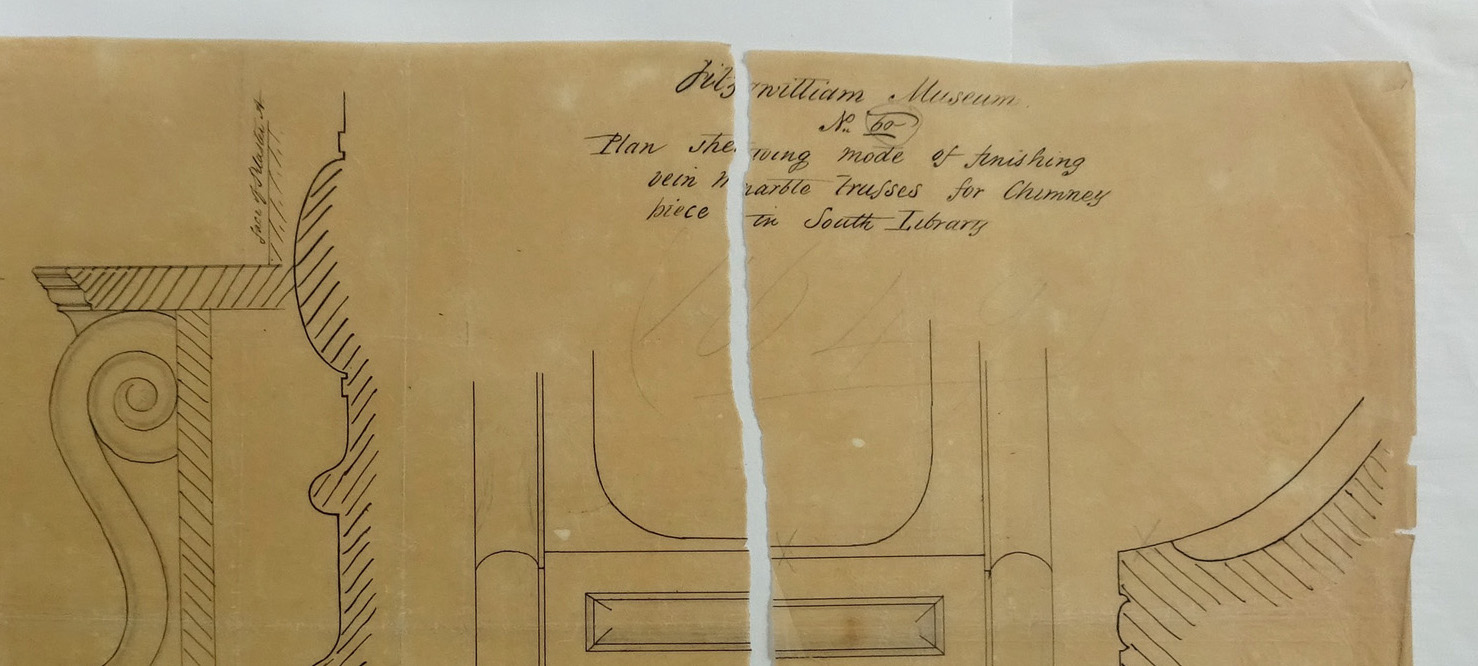 Fitzwilliam Museum.
No. 60
Plan shewing mode of finishing
vein marble Trusses for Chimney
piece in South Library
face of Pilaster A
1049